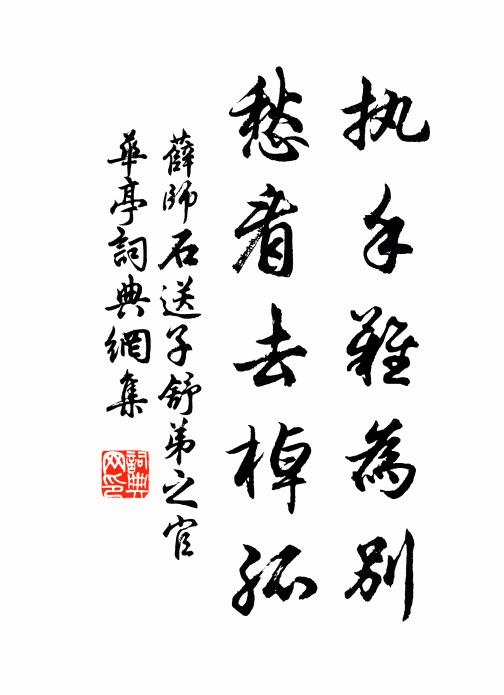 执手難為別
愁看去棹孤
薛師石送子舒弟之官
華亭詞典網集
詞典网印